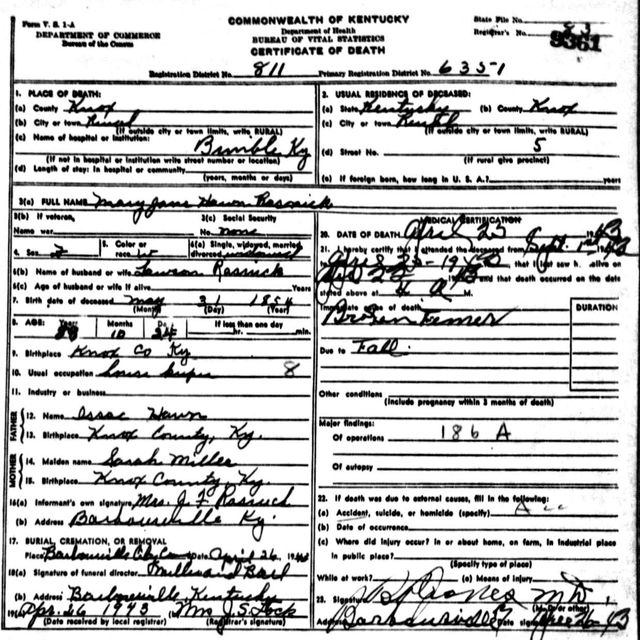 Form V. S. 1-A
DEPARTMENT OF COMMERCE
Bureau of the Census
COMMONWEALTH OF KENTUCKY
Department of Health
BUREAU OF VITAL STATISTICS
CERTIFICATE OF DEATH
State File No.
Registrar's No. 83
9361
Registration District No. 811 Primary Registration District No. 6351
1. PLACE OF DEATH:
(a) County Knox
(b) City or town Rural
(If outside city or town limits, write RURAL)
(c) Name of hospital or institution: Bimble Ky
(If not in hospital or institution write street number or location)
(d) Length of stay: in hospital or community
(years, months or days)
2. USUAL RESIDENCE OF DECEASED:
(a) State Kentucky (b) County Knox
(c) City or town
(If outside city or town limits, write RURAL)
(d) Street No. 5
(If rural give precinct)
(e) If foreign born, how long in U. S. A.? years
3(a) FULL NAME Mary Jane Hawn
3(b) If veteran,
Name war
3(c) Social Security
No. none
4. Sex F
5. Color or
race W
6(a) Single, widowed, married,
divorced widowed
6(b) Name of husband or wife Lawson
6(c) Age of husband or wife if alive Years
7. Birth date of deceased May 31 1854
(Month) (Day) (Year)
8. AGE: Years Months Days If less than one day
88 10 24 hr. min.
9. Birthplace Knox Co Ky
10. Usual occupation house keeper 8
11. Industry or business
FATHER
12. Name Issac Hawn
13. Birthplace Knox County, Ky.
MOTHER
14. Maiden name Sarah Miller
15. Birthplace Knox County Ky.
16(a) Informant's own signature Mrs. J. F.
(b) Address Barbourville Ky.
17. BURIAL, CREMATION, OR REMOVAL
Place Barbourville Date April 26, 1943
18(a) Signature of funeral director
(b) Address Barbourville, Kentucky
19(a) Apr. 26 1943 (b) Mrs J. S. Lock
(Date received by local registrar) (Registrar's signature)
MEDICAL CERTIFICATION
20. DATE OF DEATH April 25 1943
21. I hereby certify that I attended the deceased from Sept. 1943
April 25 - 1943, that I last saw h. alive on
1943 and that death occurred on the date
stated above at 4 A M.
Immediate cause of death DURATION
Broken Femer
Due to Fall
Other conditions
(Include pregnancy within 3 months of death)
Major findings:
Of operations 186 A
Of autopsy
22. If death was due to external causes, fill in the following:
(a) Accident, suicide, or homicide (specify)
(b) Date of occurrence
(c) Where did injury occur? In or about home, on farm, in industrial place
in public place?
(Specify type of place)
While at work? (e) Means of injury
23. Signature Jones M.D.
(M.D. or other)
Address Barbourville Date signed